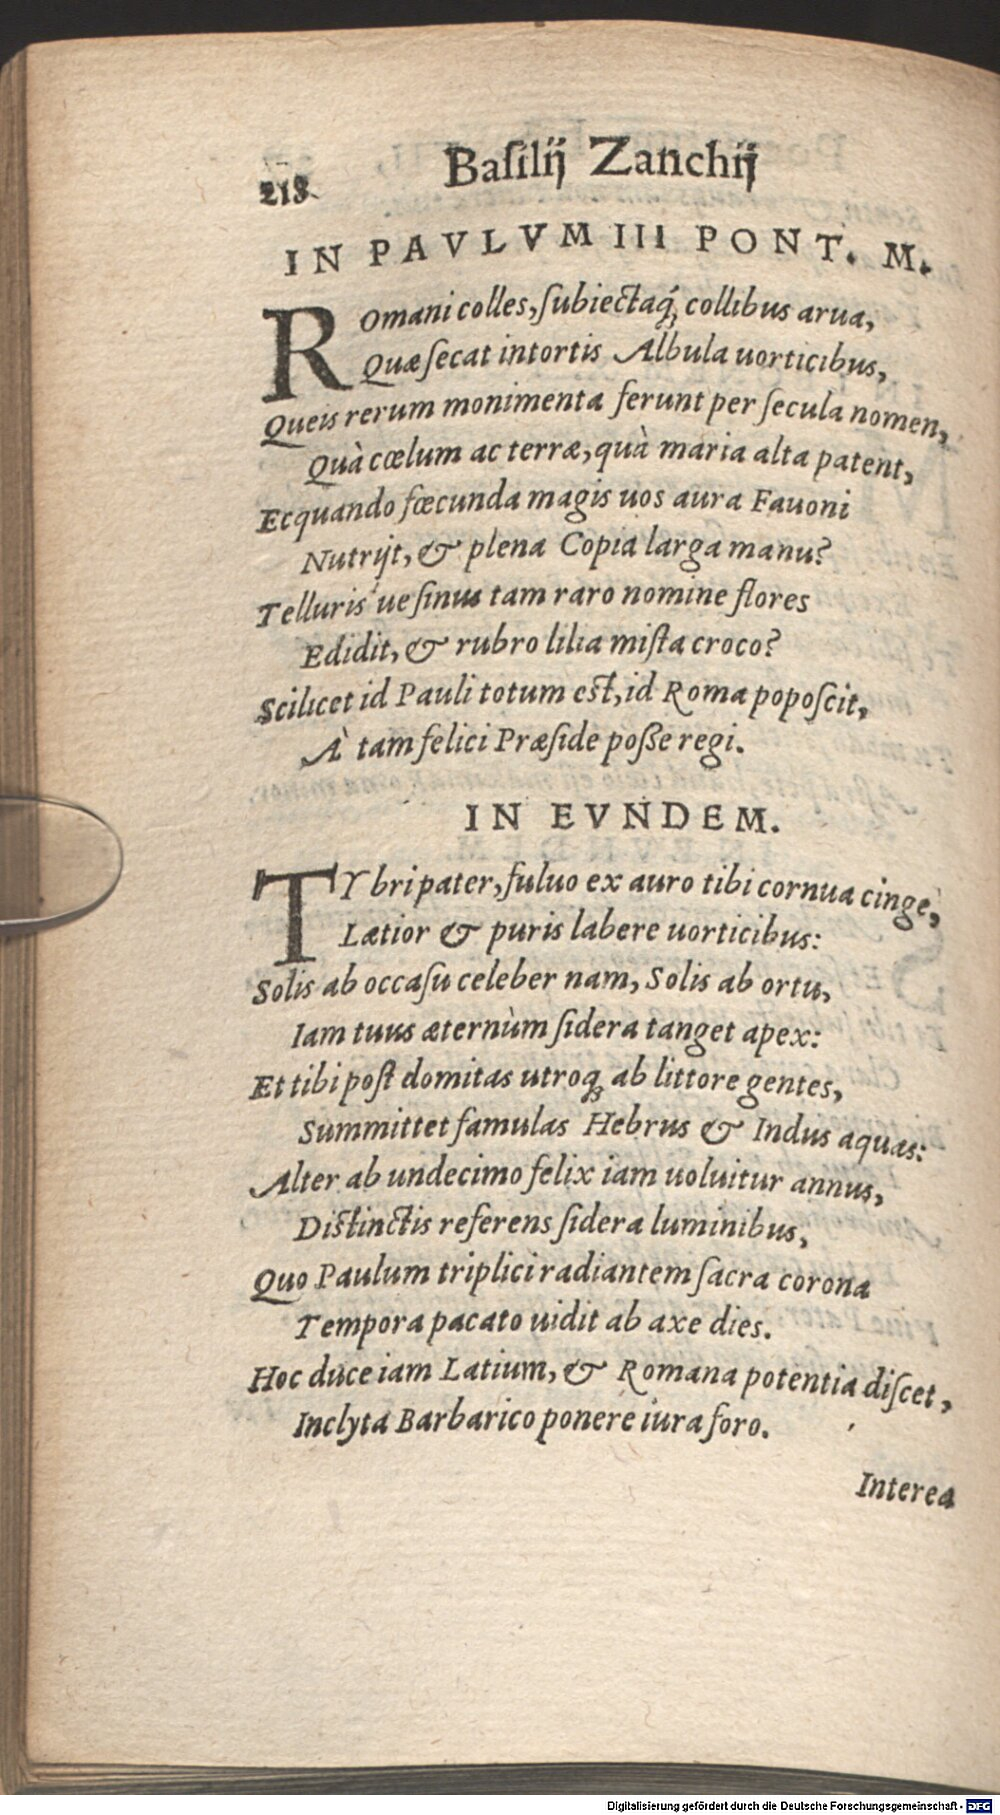 218 Baſilij Zanchij
IN PAVLVM III PONT. M.
ROmani colles, ſubiectaq́; collibus arua,
Quæ ſecat intortis Albula uorticibus,
Queis rerum monimenta ferunt per ſecula nomen,
Quà cœlum ac terræ, quà maria alta patent,
Ecquando fœcunda magis uos aura Fauoni
Nutrijt, & plena Copia larga manu?
Telluris ue ſinus tam raro nomine flores
Edidit, & rubro lilia miſta croco?
Scilicet id Pauli totum eſt, id Roma popoſcit,
À tam felici Præſide poſſe regi.
IN EVNDEM.
TYbri pater, fuluo ex auro tibi cornua cinge,
Lætior & puris labere uorticibus:
Solis ab occaſu celeber nam, Solis ab ortu,
Iam tuus æternùm ſidera tanget apex:
Et tibi poſt domitas utroq; ab littore gentes,
Summittet famulas Hebrus & Indus aquas:
Alter ab undecimo felix iam uoluitur annus,
Diſtinctis referens ſidera luminibus,
Quo Paulum triplici radiantem ſacra corona
Tempora pacato uidit ab axe dies.
Hoc duce iam Latium, & Romana potentia diſcet,
Inclyta Barbarico ponere iura foro.
Interea
Digitalisierung gefördert durch die Deutsche Forschungsgemeinschaft - DFG